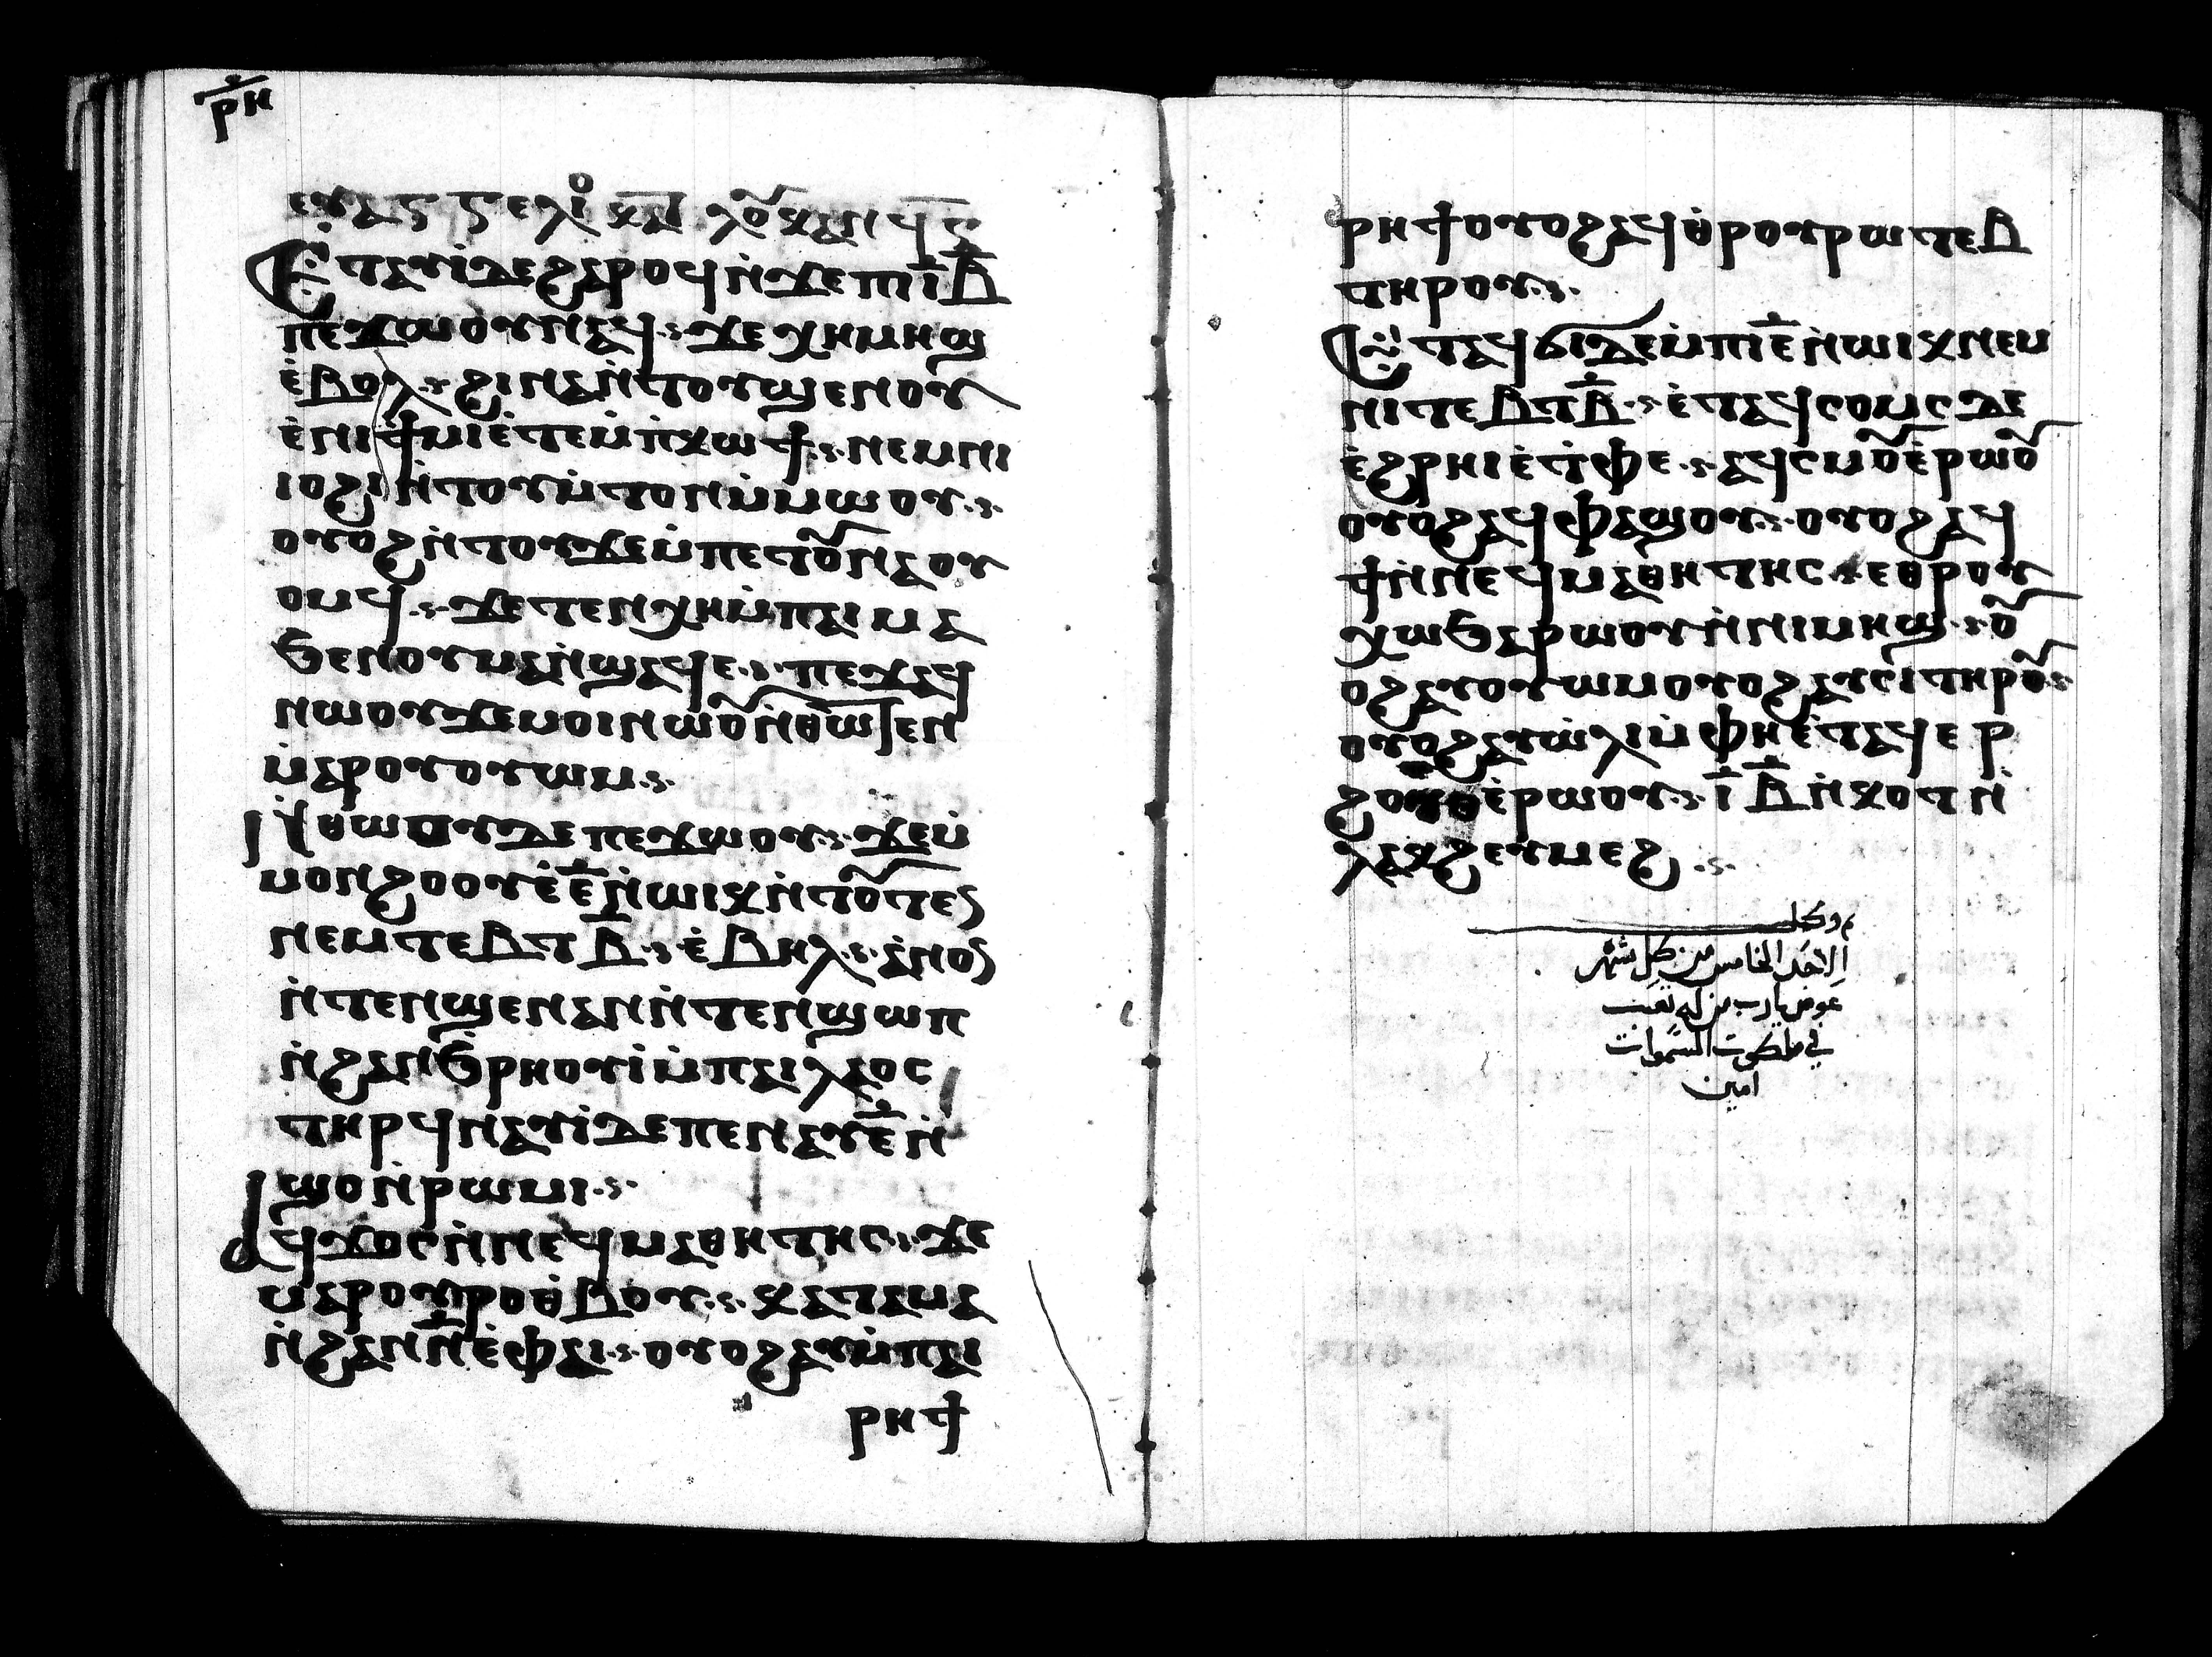 ⲣⲏ
ⲉⲩⲁⲅⲅⲉⲗⲓⲟ ⲕⲁ ⲗⲟⲩⲕⲁⲛ ϥⲋ
Ⲉⲧⲁⲩⲓ̀ⲇⲉϩⲁⲣⲟϥⲛ̀ϫⲉⲡⲓⲓ̅ⲃ̅
ⲡⲉϫⲱⲟⲩⲛⲁϥ ϫⲉⲭⲁⲡⲓⲙⲏϣ
ⲉ̀ⲃⲟⲗ ϩⲓⲛⲁⲛ̀ⲧⲟⲩϣⲉⲛⲟⲩ
ⲉ̀ⲛⲓϯⲙⲓⲉ̀ⲧⲉⲙ̀ⲡⲕⲱϯ ⲛⲉⲙⲛⲓ
ⲓⲟϩⲓⲛ̀ⲧⲟⲩⲙ̀ⲧⲟⲛⲙ̀ⲙⲱⲟⲩ
ⲟⲩⲟϩⲛ̀ⲧⲟⲩϫⲉⲙ̀ⲡⲉⲧⲟⲩⲛⲁⲟⲩ
ⲟⲙϥ ϫⲉⲧⲉⲛⲭⲏⲙ̀ⲡⲁⲓⲙⲁ
ϧⲉⲛⲟⲩⲙⲁⲛ̀ϣⲁϥⲉ ⲡⲉϫⲁϥ
ⲛⲱⲟⲩϫⲉⲙⲟⲓⲛⲱⲟⲩⲛ̀ⲑⲱⲧⲉⲛ
ⲙ̀ⲁⲣⲟⲩⲟⲩⲱⲙ
Ⲛ̀ⲑⲱⲟⲩⲇⲉⲡⲉϫⲱⲟⲩ ϫⲉⲙ̀
ⲙⲟⲛϩⲟⲟⲩⲉ̀ⲉ̅ⲛ̀ⲱⲓⲕⲛ̀ⲧⲟⲩⲧⲉⲛ
ⲛⲉⲙⲧⲉⲃⲧⲃ̅ ⲉ̀ⲃⲏⲗ ⲁ̀ⲛⲟⲛ
ⲛ̀ⲧⲉⲛϣⲉⲛⲁⲛⲛ̀ⲧⲉⲛϣⲱⲡ
ⲛ̀ϩⲁⲛϧⲣⲏⲟⲩⲓ̀ⲙ̀ⲡⲁⲓⲗⲁⲟⲥ
ⲧⲏⲣϥⲛⲁⲩⲓ̀ⲇⲉⲡⲉⲛⲁⲩⲉ̅ⲛ̀
ϣⲟⲛ̀ⲣⲱⲙⲓ
ⲁϥϫⲟⲥⲛ̀ⲛⲉϥⲙⲁⲑⲏⲧⲏⲥ ϫⲉ
ⲙⲁⲣⲟⲩⲣⲟⲑⲃⲟⲩ ⲕⲁⲧⲁⲙⲁ
ⲛ̀ϩⲁⲛⲛ̅ⲉ̀ⲫⲁⲓ ⲟⲩⲟϩⲁⲩⲙ̀ⲡⲁⲓ
ⲣⲏϯ
ⲣⲏϯⲟⲩⲟϩⲁϥⲑⲣⲟⲩⲣⲱⲧⲉⲃ
ⲧⲏⲣⲟⲩ
Ⲉⲧⲁϥϭⲓⲇⲉⲙ̀ⲡⲓⲉ̅ⲛ̀ⲱⲓⲕⲛⲉⲙ
ⲡⲓⲧⲉⲃⲧⲃ̅ ⲉ̀ⲧⲁϥⲥⲟⲙⲥⲇⲉ
ⲉ̀ϩⲣⲏⲓⲉ̀ⲧ̀ⲫⲉ ⲁϥⲥⲙⲟⲩⲉ̀ⲣⲱⲟⲩ
ⲟⲩⲟϩⲁϥⲫⲁϣⲟⲩ ⲟⲩⲟϩⲁϥ
ϯⲛ̀ⲛⲉϥⲙⲁⲑⲏⲧⲏⲥ ⲉⲑⲣⲟⲩ
ⲭⲱϧⲁⲣⲱⲟⲩⲛ̀ⲛⲓⲙⲏϣ ⲟⲩ
ⲟϩⲁⲩⲟⲩⲱⲙⲟⲩⲟϩⲁⲩⲥⲓⲧⲏⲣⲟⲩ
ⲟⲩⲟϩⲁⲩⲱ̀ⲗⲓⲙ̀ⲫⲏⲉ̀ⲧⲁϥⲉⲣ
ϩⲟⲩⲟⲉ̀ⲣⲱⲟⲩ ⲓ̅ⲃ̅ⲛ̀ⲕⲟⲧⲛ̀
ⲗⲁⲕϩⲉⲩⲙⲉϩ
وكمل
الاحد الخامس من كل شهر
عوض يارب من له تعب
في ملكوت السموات
امين